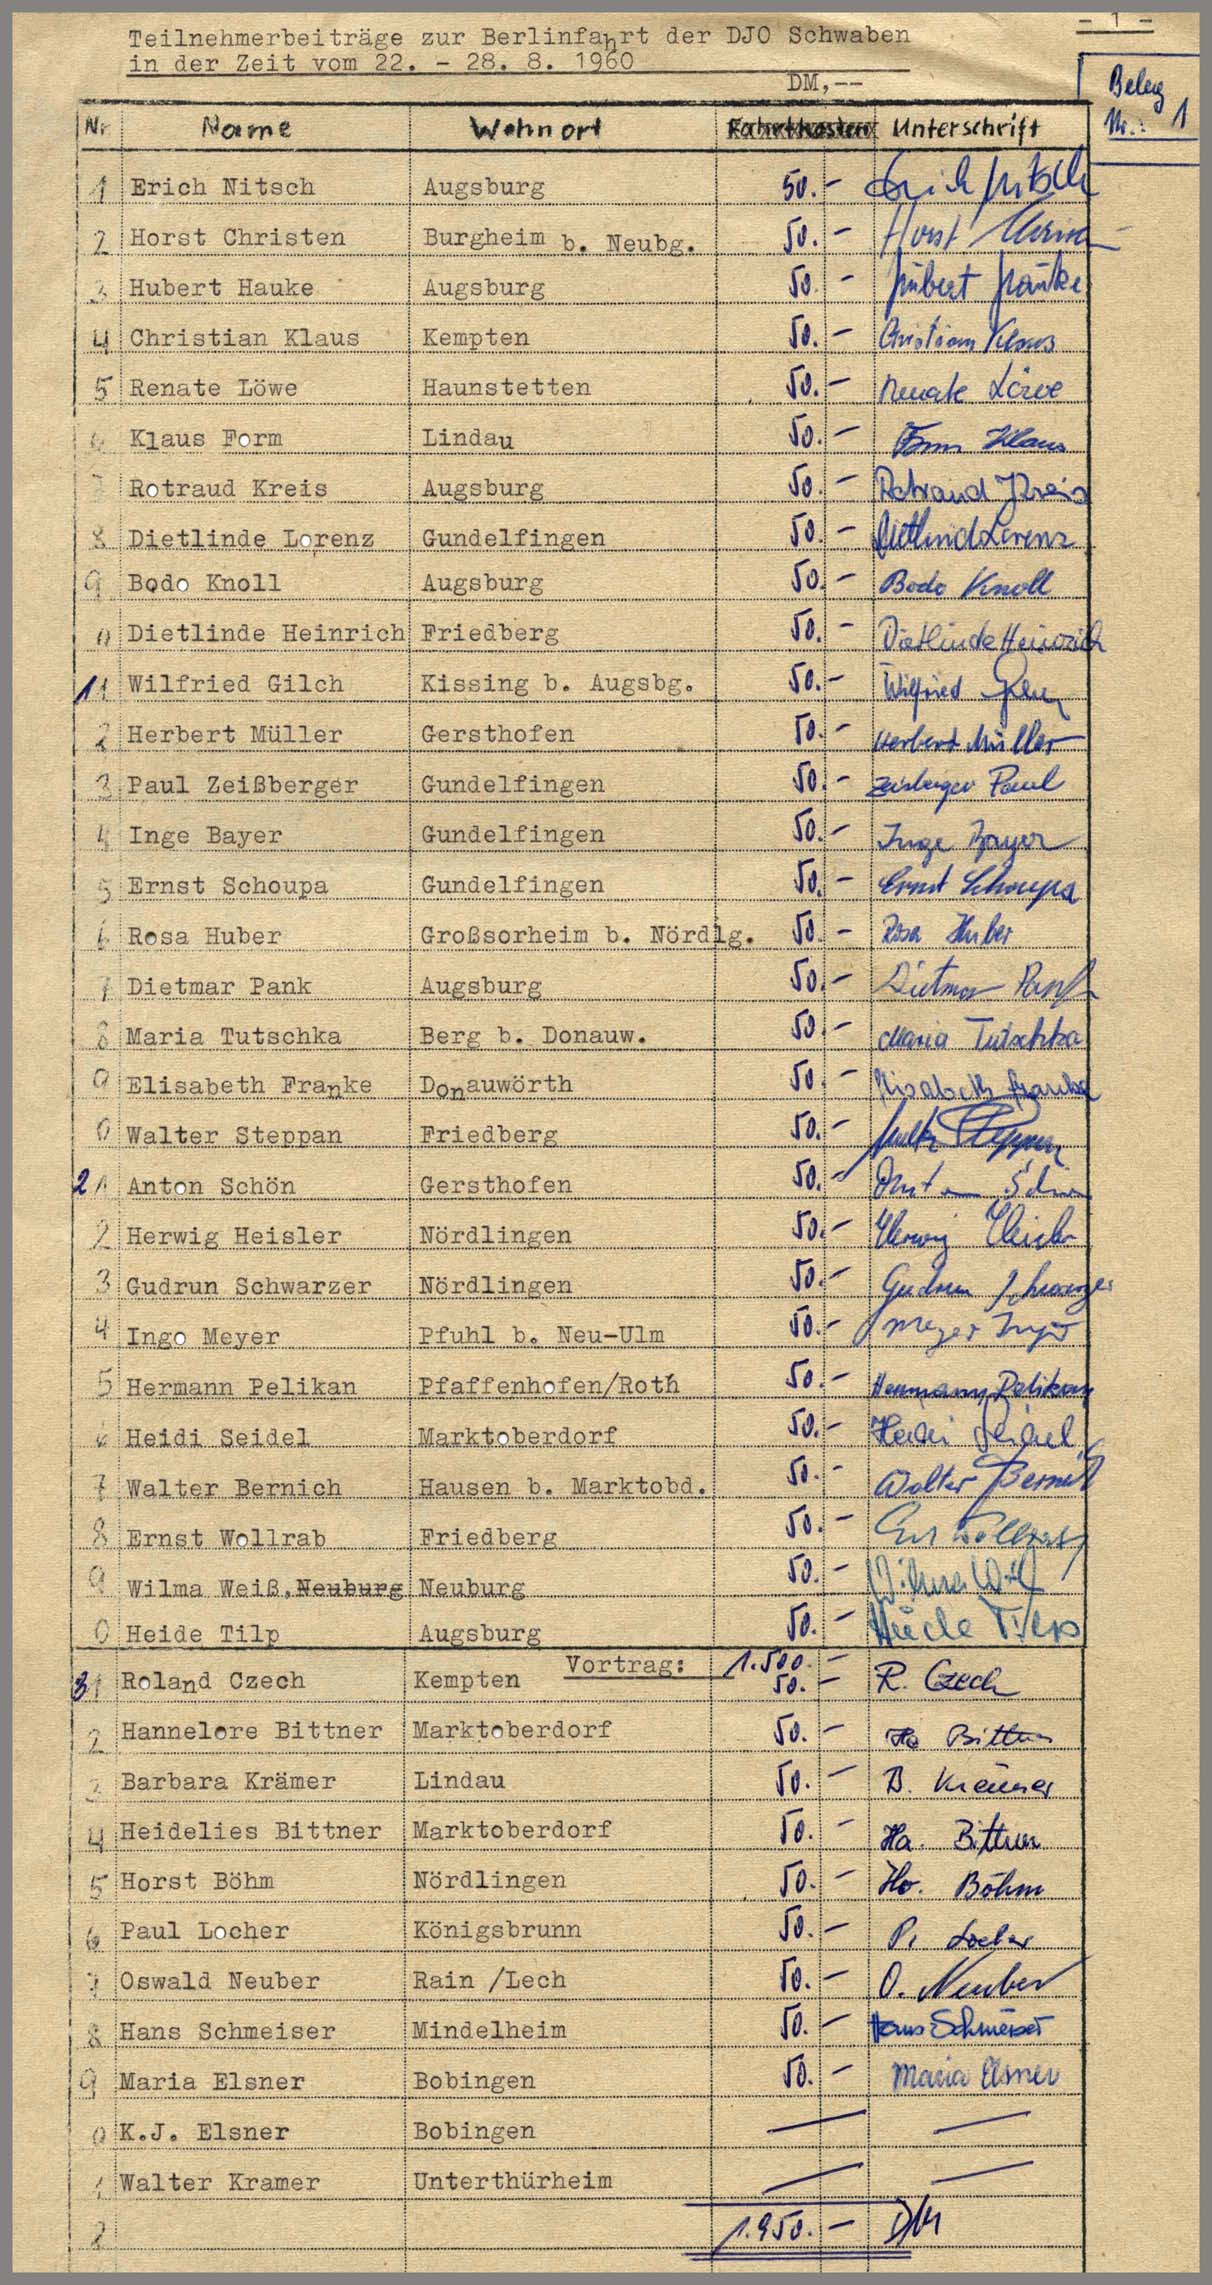 - 1 -
Teilnehmerbeiträge zur Berlinfahrt der DJO Schwaben
in der Zeit vom 22. - 28. 8. 1960
DM,--
Beleg
Nr.: 1
Nr Name Wohnort Fahrtkosten Unterschrift
1 Erich Nitsch Augsburg 50.- Erich Nitsch
2 Horst Christen Burgheim b. Neubg. 50.- Horst Christen
3 Hubert Hauke Augsburg 50.- Hubert Hauke
4 Christian Klaus Kempten 50.- Christian Klaus
5 Renate Löwe Haunstetten 50.- Renate Löwe
6 Klaus Form Lindau 50.- Form Klaus
7 Rotraud Kreis Augsburg 50.- Rotraud Kreis
8 Dietlinde Lorenz Gundelfingen 50.- Dietlind Lorenz
9 Bodo Knoll Augsburg 50.- Bodo Knoll
0 Dietlinde Heinrich Friedberg 50.- Dietlinde Heinrich
11 Wilfried Gilch Kissing b. Augsbg. 50.- Wilfried Gilch
2 Herbert Müller Gersthofen 50.- Herbert Müller
3 Paul Zeißberger Gundelfingen 50.- Zeisberger Paul
4 Inge Bayer Gundelfingen 50.- Inge Bayer
5 Ernst Schoupa Gundelfingen 50.- Ernst Schoupa
6 Rosa Huber Großsorheim b. Nördlg. 50.- Rosa Huber
7 Dietmar Pank Augsburg 50.- Dietmar Pank
8 Maria Tutschka Berg b. Donauw. 50.- Maria Tutschka
9 Elisabeth Franke Donauwörth 50.- Elisabeth Franke
0 Walter Steppan Friedberg 50.- Walter Steppan
21 Anton Schön Gersthofen 50.- Anton Schön
2 Herwig Heisler Nördlingen 50.- Herwig Heisler
3 Gudrun Schwarzer Nördlingen 50.- Gudrun Schwarzer
4 Ingo Meyer Pfuhl b. Neu-Ulm 50.- Meyer Ingo
5 Hermann Pelikan Pfaffenhofen/Roth 50.- Hermann Pelikan
6 Heidi Seidel Marktoberdorf 50.- Heidi Seidel
7 Walter Bernich Hausen b. Marktobd. 50.- Walter Bernich
8 Ernst Wollrab Friedberg 50.- Ernst Wollrab
9 Wilma Weiß, Neuburg Neuburg 50.- Wilma Weiß
0 Heide Tilp Augsburg 50.- Heide Tilp
Vortrag: 1.500.-
31 Roland Czech Kempten 50.- R. Czech
2 Hannelore Bittner Marktoberdorf 50.- Ha Bittner
3 Barbara Krämer Lindau 50.- B. Krämer
4 Heidelies Bittner Marktoberdorf 50.- Ha. Bittner
5 Horst Böhm Nördlingen 50.- Ho. Böhm
6 Paul Locher Königsbrunn 50.- P. Locher
7 Oswald Neuber Rain /Lech 50.- O. Neuber
8 Hans Schmeiser Mindelheim 50.- Hans Schmeiser
9 Maria Elsner Bobingen 50.- Maria Elsner
0 K.J. Elsner Bobingen — —
1 Walter Kramer Unterthürheim — —
2 1.950.- DM